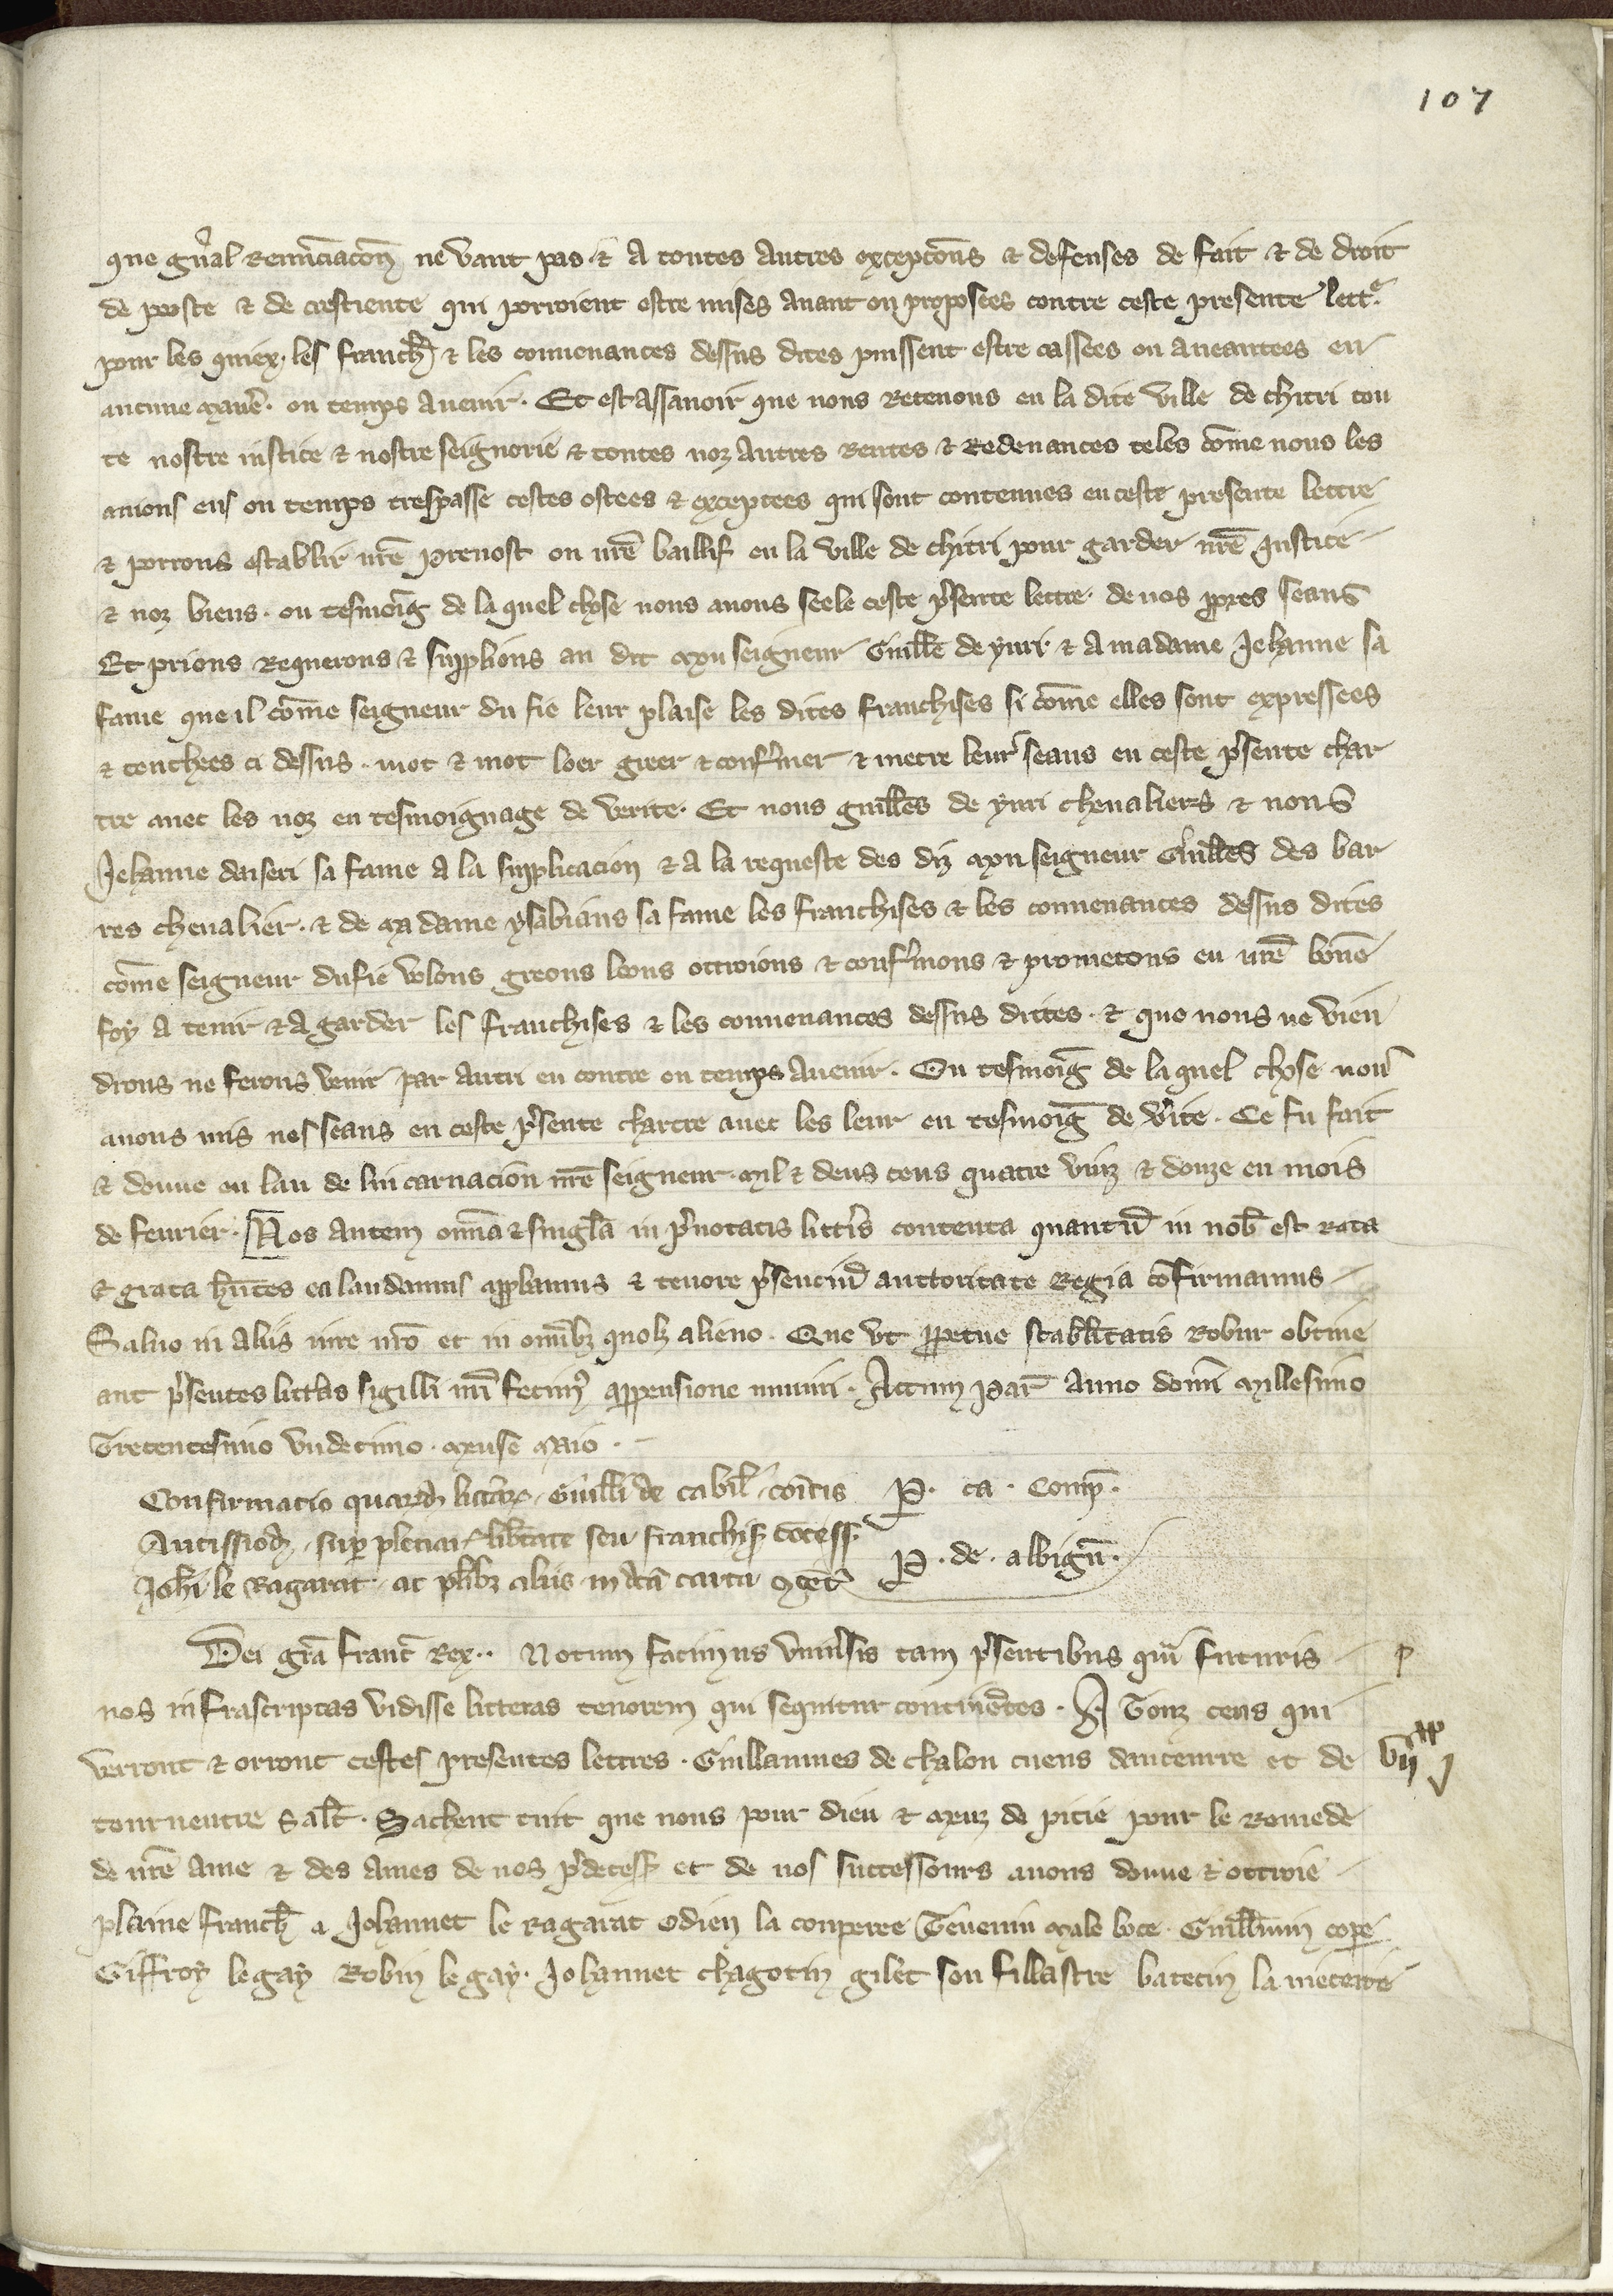 107
que gn̄al renūciacōn ne vaut pas ⁊ a toutes autres exceptōns ⁊ defenses de fait ⁊ de droit
de poste ⁊ de crestiente qui porroient estre mises auant ou proposees contre ceste presente lettͤ
pour les quiex les franch̄ ⁊ les conuenances dessus dites puissent estre cassees ou aneantees en
aucune manē. ou temps auenir. Et est assauoir que nous retenons en la dite ville de chitri tou
te nostre iustice ⁊ nostre seignorie ⁊ toutes noz autres rentes ⁊ redeuances teles cōme nous les
auions eus ou temps trespasse cestes ostees ⁊ exceptees qui sont contenues en ceste presente lettre
⁊ porrons establir nr̄e preuost ou nr̄e baillif en la ville de chitri pour garder nr̄e iustice
⁊ noz biens. ou tesmoiḡ de la quel chose nous auons seele ceste p̄sente lettre. de nos ꝓpres seaus
Et prions requerons ⁊ supplions au dit mon seigneur Guill̄e de yuri. ⁊ a madame Jehanne sa
fame que il cōme seigneur du fie leur plaise les dites franchises si cōme elles sont expressees
⁊ touchees ci dessus. mot ⁊ mot loer greer ⁊ conf̄mer ⁊ metre leur seaus en ceste p̄sente char
tre auec les noz en tesmoignage de verite. Et nous guill̄es de yuri cheualiers ⁊ nous
Jehanne daiseri sa fame a la supplicacion ⁊ a la requeste des diz mon seigneur Guill̄es des bar
res cheualier. ⁊ de madame ysabiaus sa fame les franchises ⁊ les conuenances dessus dites
cōme seigneur du fie volons greons loons ottroions ⁊ conf̄mons ⁊ prometons en nr̄e bōne
foy a tenir ⁊ a garder les franchises ⁊ les conuenances dessus dittes. ⁊ que nous ne vien
drons ne ferons venir par autri en contre ou temps auenir. Ou tesmoiḡ de la quel chose nous
auons mis nos seaus en ceste p̄sente chartre auec les leur en tesmoiḡ de v̄ite. Ce fu fait
⁊ donne en lan de lin carnacion nr̄e seigneur. mil ⁊ deus cens quatre vinz ⁊ douze en mois
de feurier. Nos autem om̄ia ⁊ singl̄a in p̄notatis litt̄is contenta quantū in nob̄ est rata
⁊ grata hn̄tes ea laudamus app̄bamus ⁊ tenore p̄senciū auttoritate regia cōfirmamus
Saluo in aliis iure nr̄o et in om̄ibꝫ quolꝫ alieno. Que vt ꝑpetue stabl̄itatis robur obtine
ant p̄sentes litt̄as sigilli nr̄i fecimꝰ appensione muniri. Actum par̄ anno domī millesimo
Trecentesimo vndecimo. mense maio.
Confirmatio quarūdꝫ litt̄arꝝ. Guill̄i de cabil̄. cōitis
Autissiodꝫ. suꝑ plenar̄ lib̄tate seu franchis̄ cōcess̄
Joh̄i le ragarat. ac pl̄ibꝫ aliis in dc̄a carta ꝯtent̄
P. ca. comp̄.
P. de. albign̄.
Dei gr̄a franc̄ Rex.. Notum facimus vniu̓sis tam p̄sentibus qͣm futuris
nos infrascriptas vidisse litteras tenorem qui sequitur continēntes. A Touz ceus qui
verront ⁊ orront cestes presentes lettres. Guillaumes de chalon cuens dauceurre et de
tourneurre salt̄. Sachent tuit que nous pour dieu ⁊ meuz de pitie pour le remede
de nr̄e ame ⁊ des ames de nos p̄decess̄ et de nos successours auons donne ⁊ ottroie
plaine franch̄ a Johannet le ragarat odien la couperee Teuenin male boce. Guill̄min cope
Giffroy le gay Robin le gay. Johannet chagotin gilet son fillastre